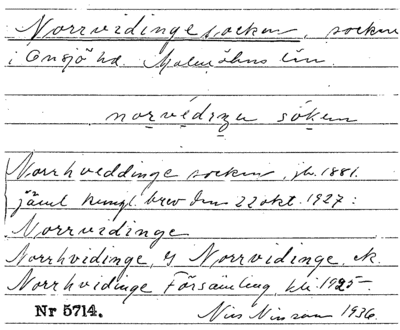 Norrvidinge socken, socken
i Onsjö hd. Malmöhus län.
norvédiŋən sókən
Norrhveddinge socken, jb. 1881.
jäml. kungl. brev den 22 okt. 1927:
Norrvidinge
Norrhvidinge, Norrvidinge, ek.
Norrhvidinge Församling, kli. 1925
Nr 5714. Nils Nilsson 1936.